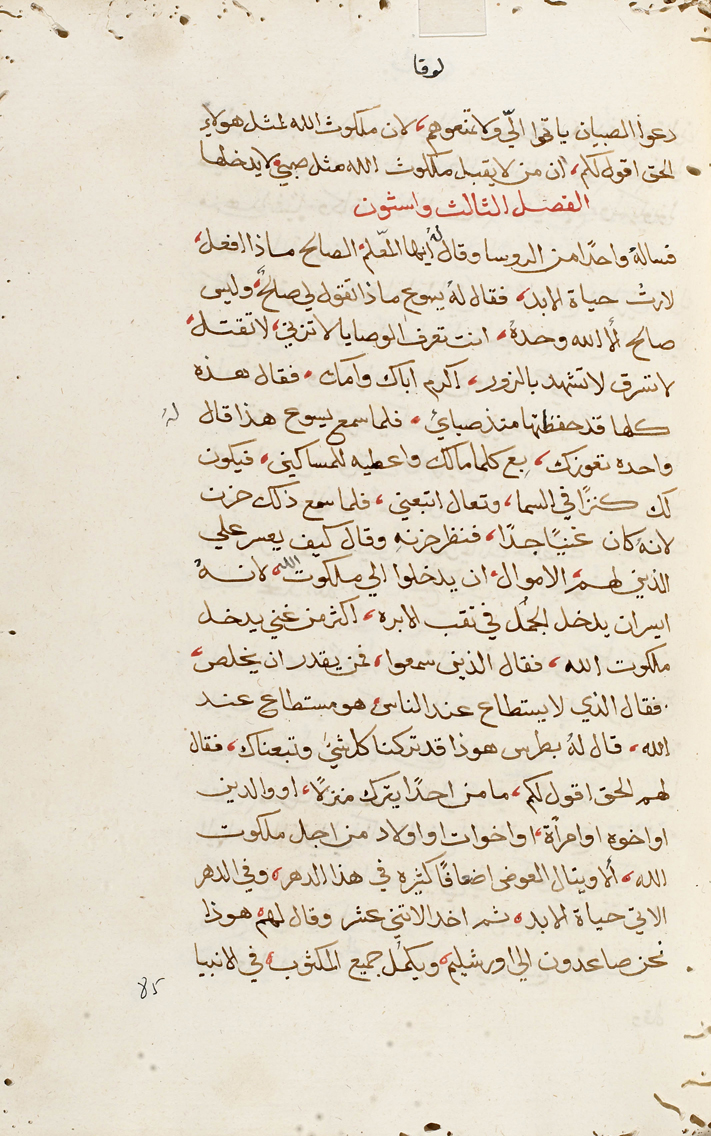 لوقا
دعوا الصبيان ياتوا اليّ ولا تمنعوهم، لان ملكوت الله لمثل هولاءِ
الحق اقول لكم، ان من لا يقبل ملكوت الله مثل صبي، لا يدخلها
الفصل الثالث والستون
فسالهُ واحدًا من الروسا وقال لهُ ايها المعّلم الصالح ماذا افعل،
لارث حياة الابد، فقال لهُ يسوع ماذا تقول لي صالحٌ، وليس
صالح الّا الله وحدهُ، انت تعرف الوصايا لا تزني، لا تقتل،
لا تسرق لا تشهد بالزور، اكرم اباك وامك، فقال هذه
كلها قد حفظتها منذ صباي، فلما سمع يسوع هذا قال لهُ
واحده تعوزك، بِع كلما مالك واعطيه للمساكين، فيكون
لك كنزًا في السما، وتعال اتبعني، فلما سمع ذلك حزن
لانهُ كان غنيًا جدًا، فنظر حزنهِ وقال كيف يعسر علي
الذين لهم، الاموال، ان يدخلوا الي ملكوت الله، لانهُ
ايسر ان يدخل الجمل في ثقب الابره، اكثر من غني يدخل
ملكوت الله، فقال الذين سمعوا، فمن يقدر ان يخلص،
فقال الذي لا يستطاع عند الناس، هو مستطاع عند
الله، قال لهُ بطرس هوذا قد تركنا كل شيٍ وتبعناك، فقال
لهم الحق اقول لكم، ما من احدًا يترك منزلًا، او والدين
او اخوه او امراة، او اخوات او اولاد من اجل ملكوت
الله، الّا وينال العوض اضعافًا كثيره في هذا الدهر، وفي الدهر
الاتي حياة الابد، ثم اخد الاتني عشر وقال لهم، هوذا
نحن صاعدون الي اورشليم، ويكمل جميع المكتوب، في الانبيا
85